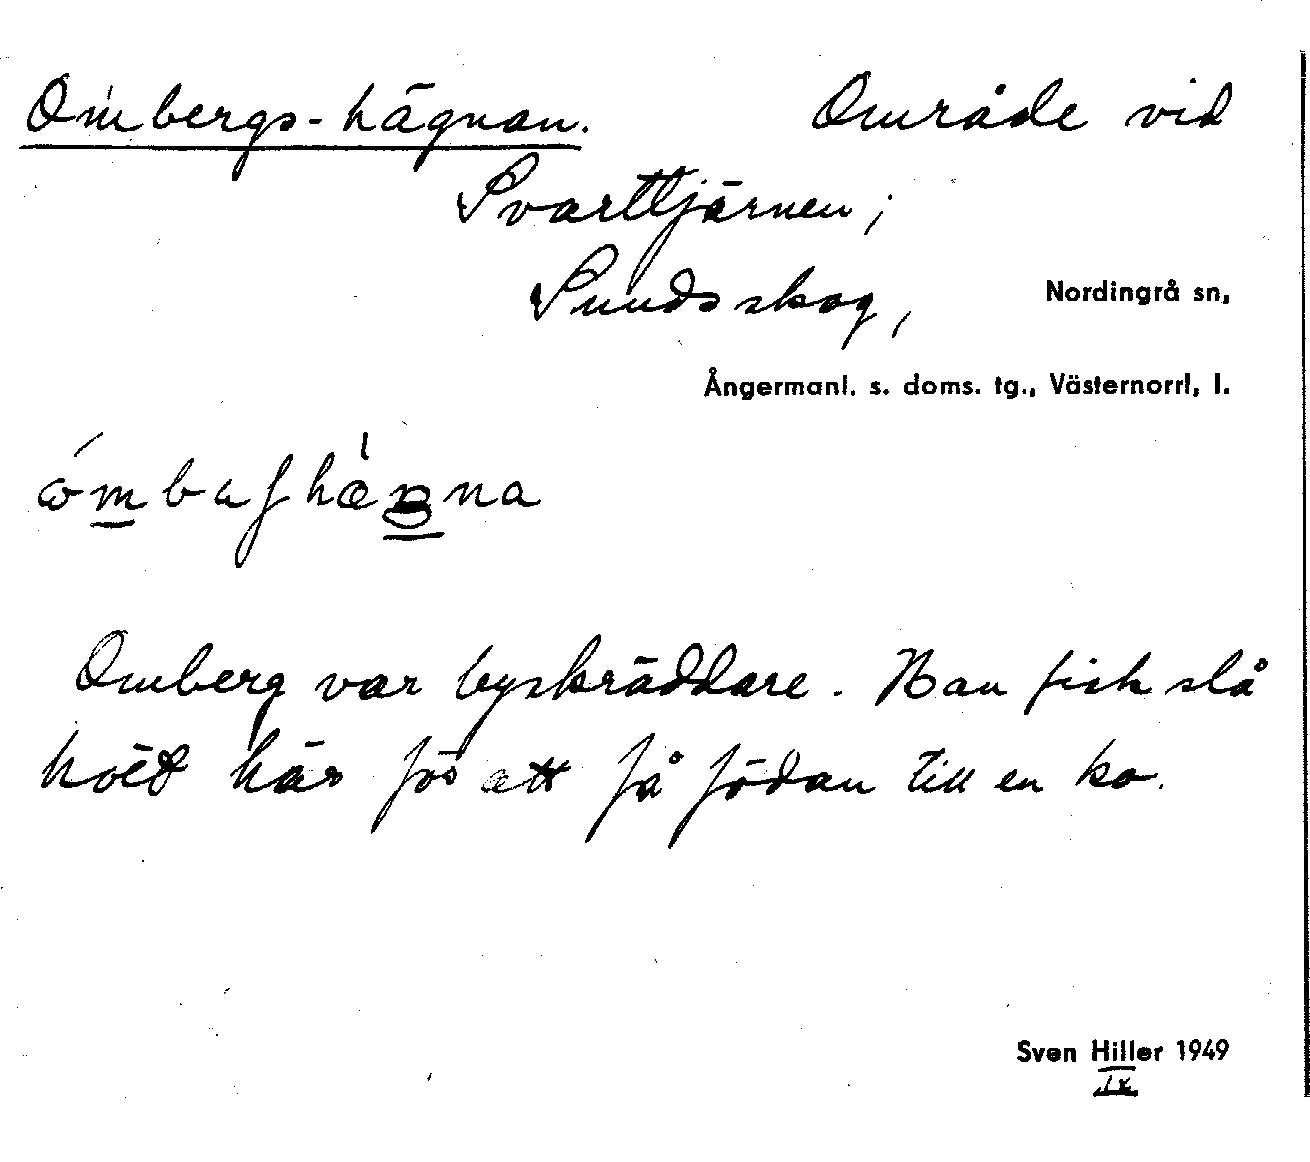 Ombergs-hägnan. Område vid
Svarttjärnen;
Sundsskog, Nordingrå sn,
Ångermanl. s. doms. tg., Västernorrl, l.
Omberg var byskräddare. Han fick slå
höet här för att få födan till en ko.
Sven Hiller 1949